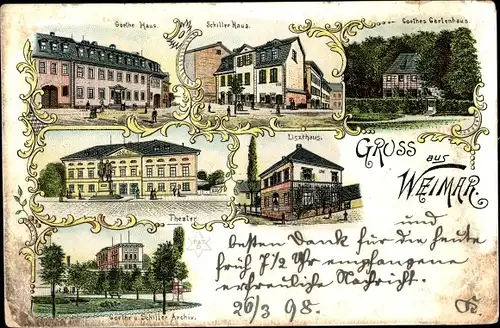 Goethe Haus.
Schiller Haus.
Goethes Gartenhaus.
Liszthaus.
Theater.
Goethe u. Schiller Archiv.
GRUSS
aus
WEIMAR.
und
besten Dank für die heute
früh 7 1/2 Uhr empfangene
erfreuliche Nachricht.
26/3 98.